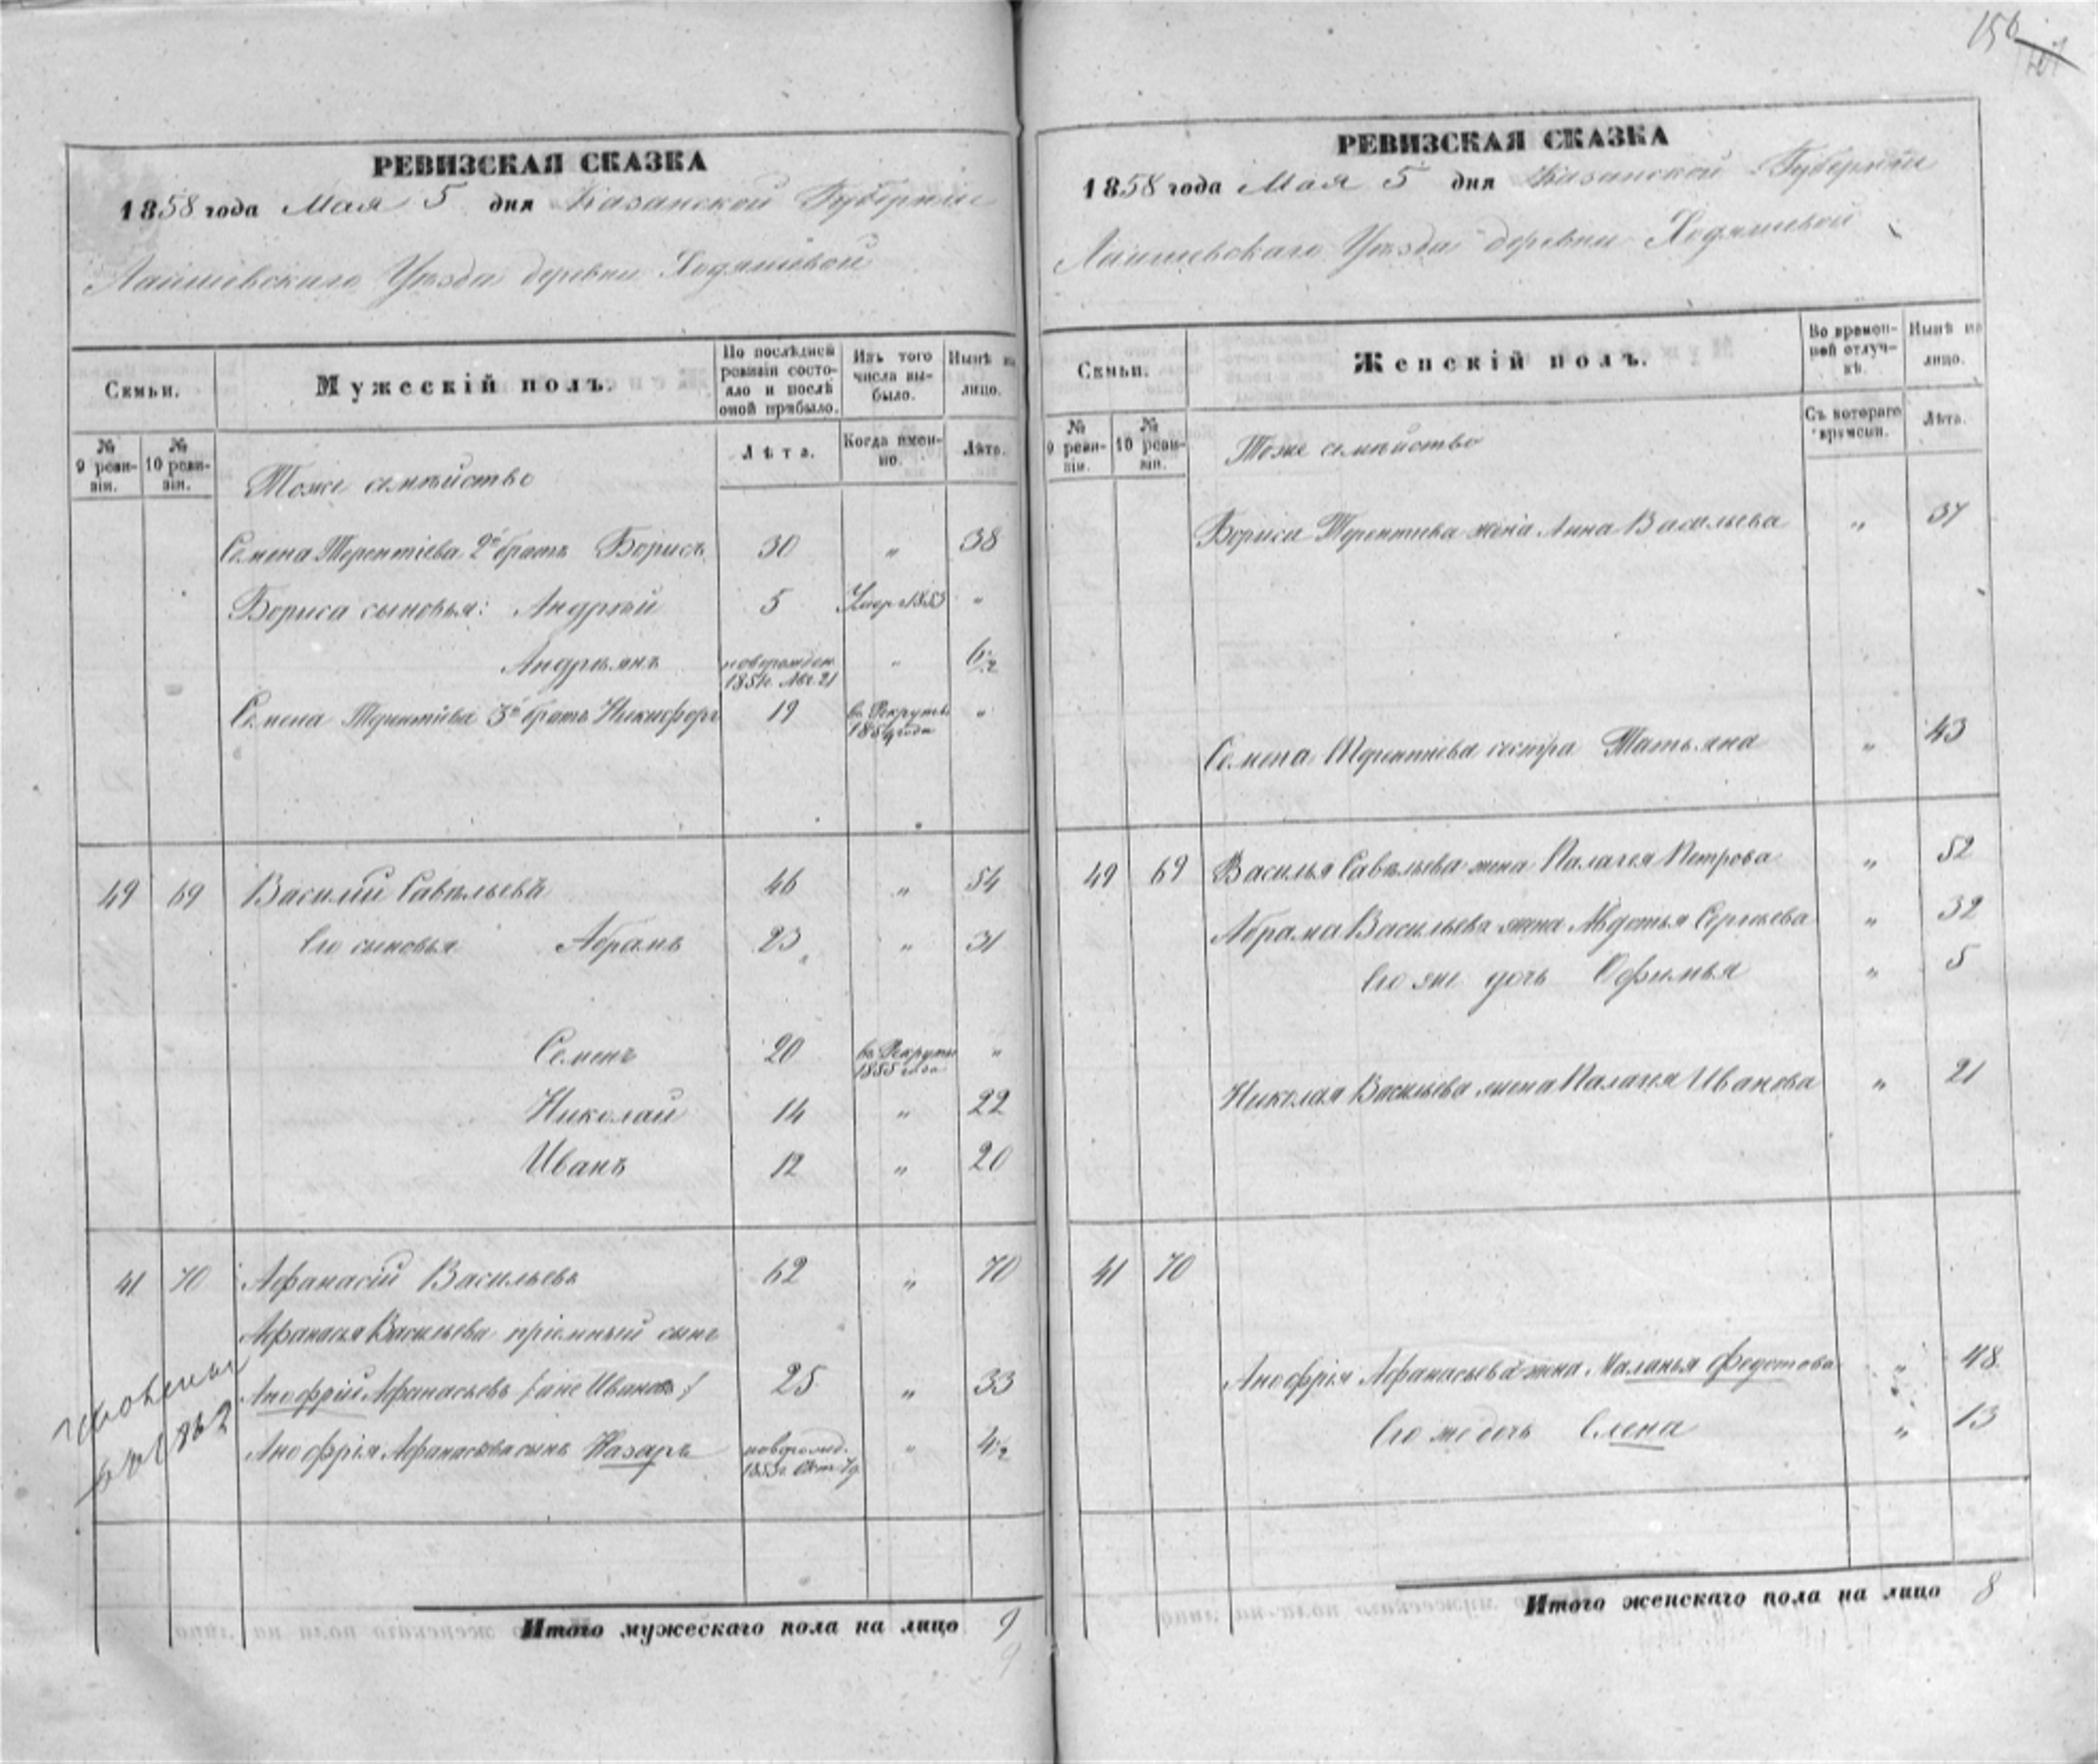 156
РЕВИЗСКАЯ СКАЗКА
1858 года Мая 5 дня Казанской Губернии
Лаишевскаго Уѣзда деревни Ходяшевой
Семьи.
Мужескій полъ.
По послѣдней ревизіи состояло и послѣ оной прибыло.
Изъ того числа выбыло.
Нынѣ на лицо.
№ 9 ревизіи.
№ 10 ревизіи.
Лѣта.
Когда именно.
Лѣта.
Тоже семѣйство
Семена Терентіева 2й братъ Борисъ 30 „ 38
Бориса сыновья: Андрей 5 Умер 1853 „
Андреянъ новорожден. 1851г. Авг. 21 „ 6½
Семена Терентіева 3й братъ Никифоръ 19 въ Рекруты 1854 года „
49 69 Василий Савельевъ 46 „ 54
Его сыновья Абрамъ 23 „ 31
Семенъ 20 въ Рекруты 1855 года „
Николай 14 „ 22
Иванъ 12 „ 20
41 70 Афанасій Васильевъ 62 „ 70
Афанасья Васильева пріемный сынъ
Анофрій Афанасьевъ /онже Ивановъ/ 25 „ 33
Анофрія Афанасьева сынъ Назаръ новорожд. 1853г. Окт. 7д. „ 4½
1862
Итого мужескаго пола на лицо 9
9
РЕВИЗСКАЯ СКАЗКА
1858 года Мая 5 дня Казанской Губерніи
Лаишевскаго Уѣзда деревни Ходяшевой
Семьи.
Женскій полъ.
Во временной отлучкѣ.
Нынѣ на лицо.
№ 9 ревизіи.
№ 10 ревизіи.
Съ котораго времени.
Лѣта.
Тоже семѣйство
Бориса Терентиева жена Анна Васильева „ 37
Семена Терентиева сестра Татьяна „ 43
49 69 Василья Савельева жена Палагея Петрова „ 52
Абрама Васильева жена Авдотья Сергѣева „ 32
Его же дочь Офимья „ 5
Николая Васильева жена Палагея Иванова „ 21
41 70
Анофрія Афанасьева жена Маланья Федотова „ 48
Его же дочь Елена „ 13
Итого женскаго пола на лицо 8